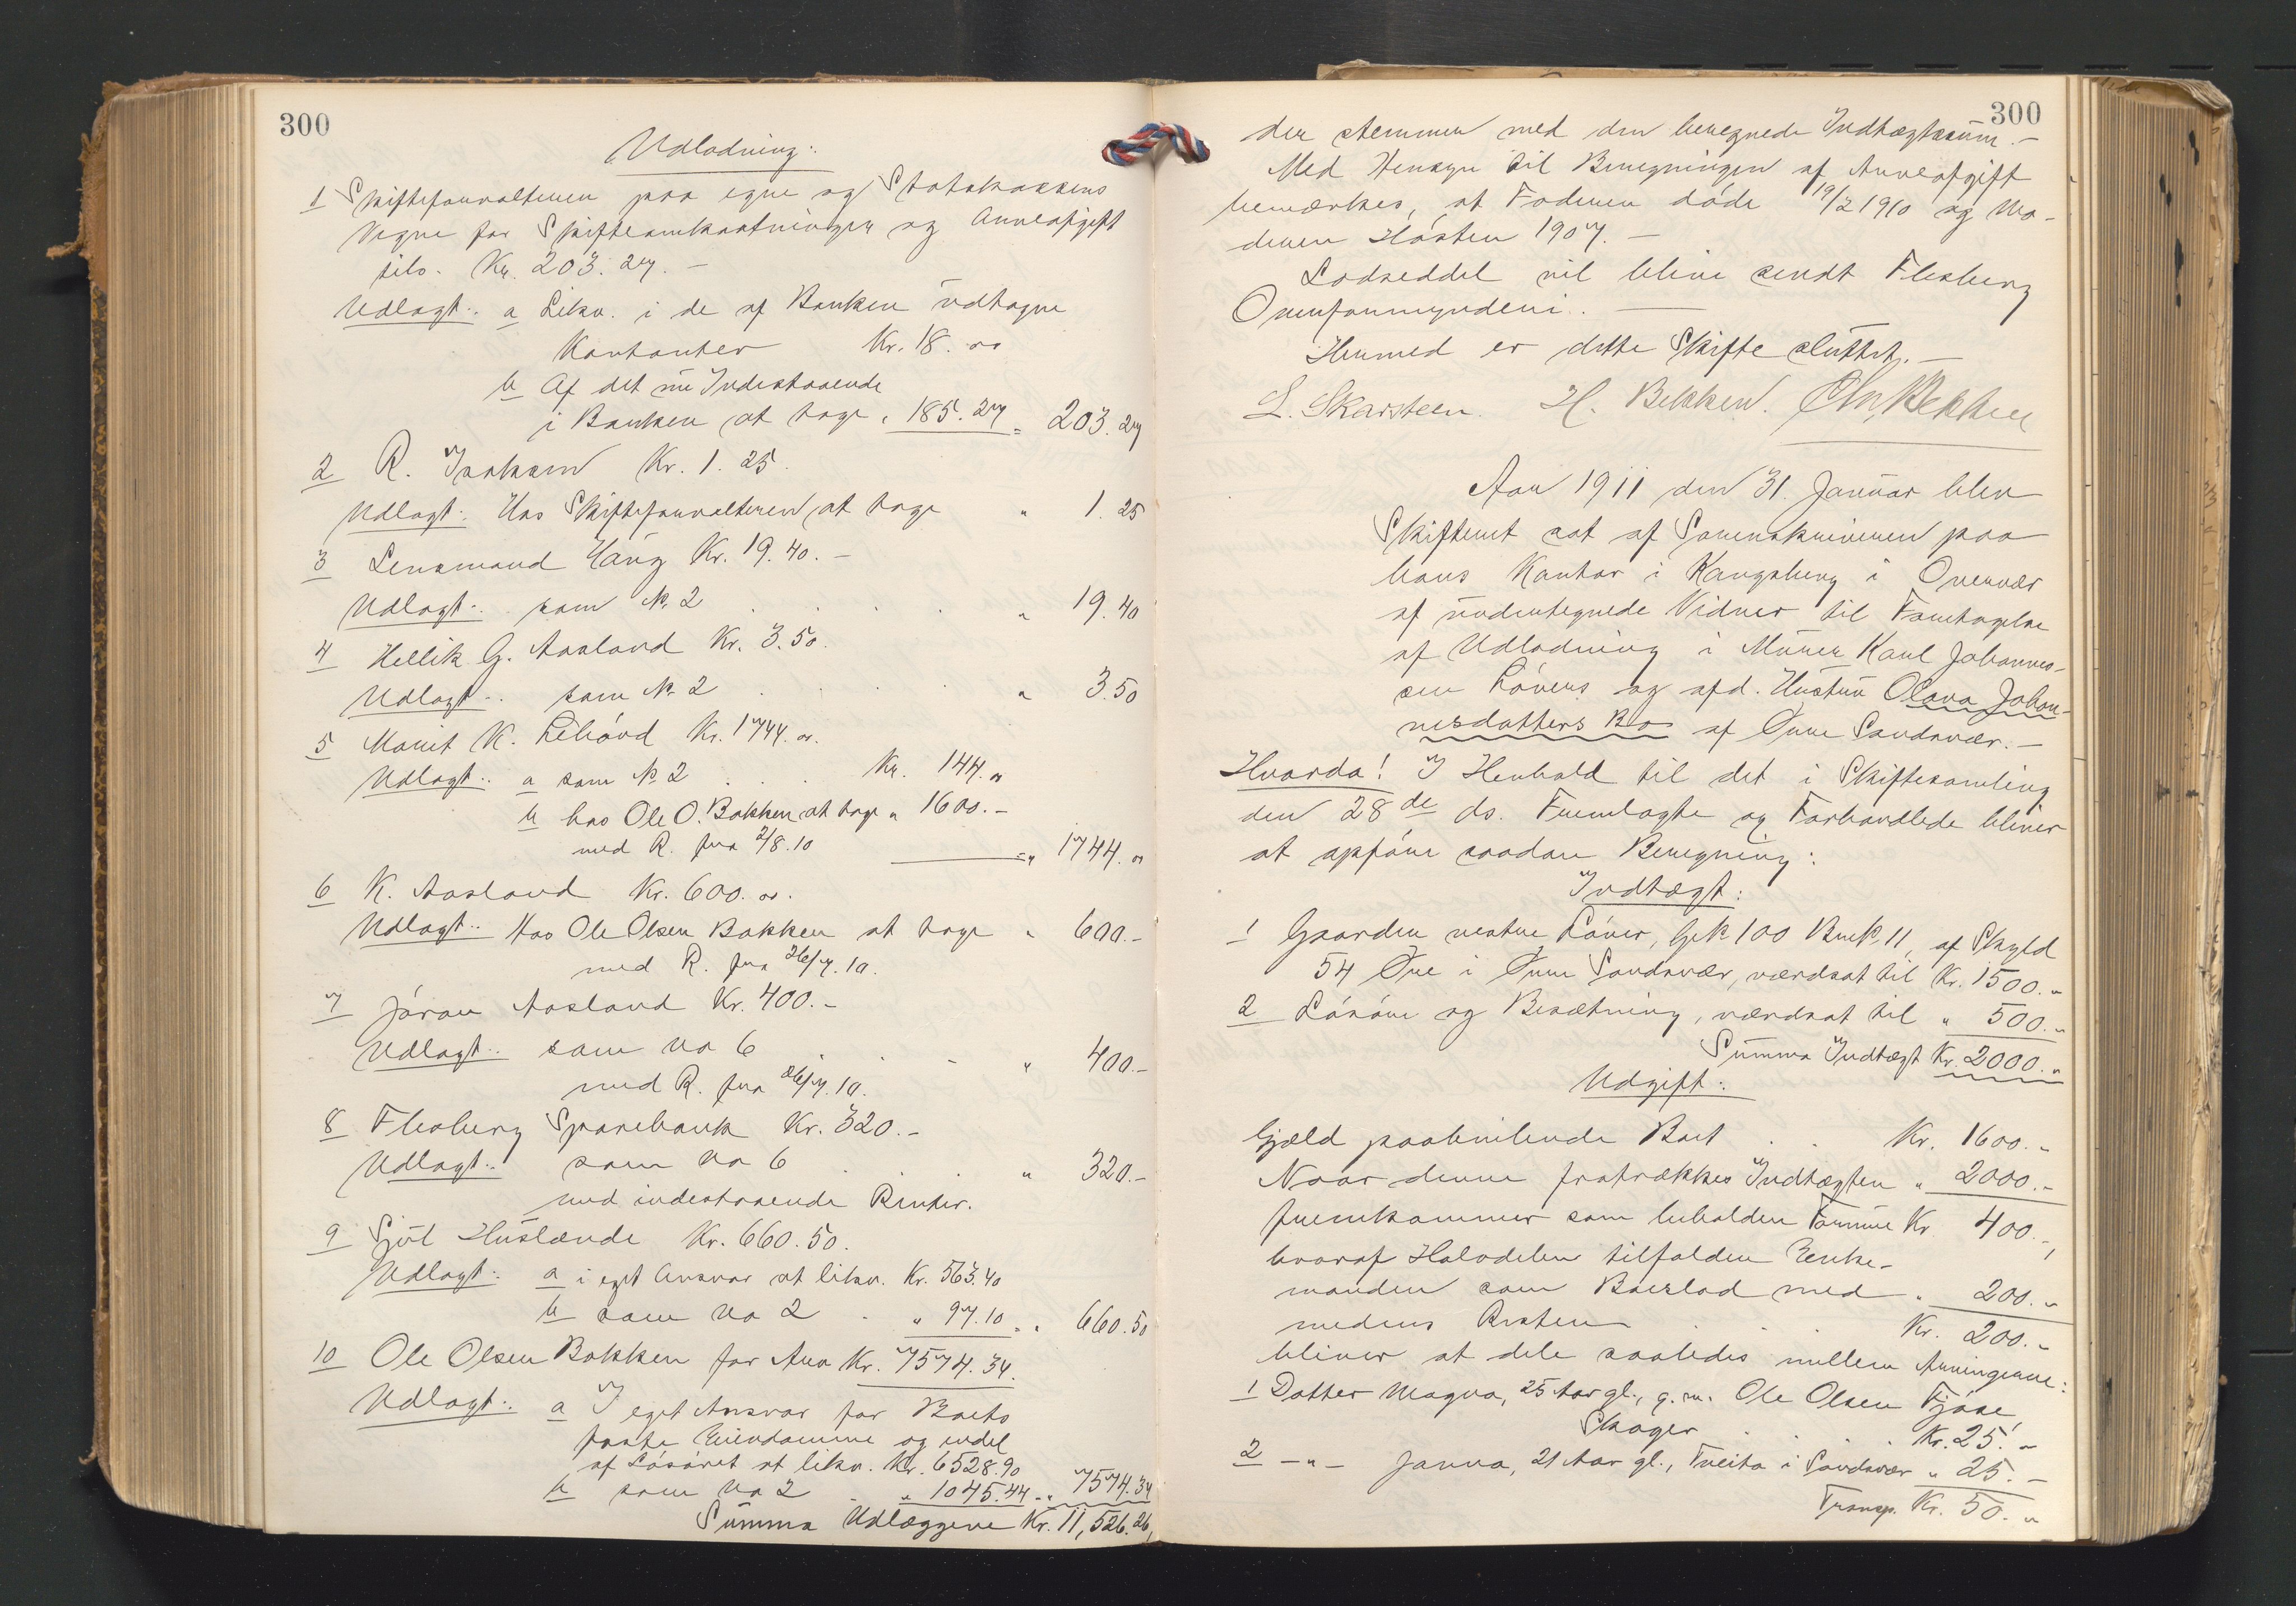 300
Udlodning:
1 Skifteforvalteren paa egne og Statskassens
Vegne for Skifteomkostninger og Arveafgift
tils. Kr. 203.27.-
Udlagt: a Likv. i de af Banken udtagne
Kontanter Kr. 18.00
b Af det nu Indestaaende
i Banken at tage " 185.27 = 203.27
2 R. Isaksen Kr. 1.25.
Udlagt: Hos Skifteforvalteren at tage " 1.25
3 Lensmand Haug Kr. 19.40.-
Udlagt: som No 2 . . . . " 19.40
4 Hellik G. Aasland Kr. 3.50.
Udlagt: som No 2 . . . " 3.50
5 Marit K. Lehovd Kr. 1744.00.
Udlagt: a som No 2 . . . Kr. 144.00
b hos Ole O. Bakken at tage " 1600.-
med R. fra 2/8.10 = " 1744.00
6 K. Aasland Kr. 600.00.
Udlagt: Hos Ole Olsen Bakken at tage " 600.-
med R. fra 26/7.10.
7 Jöran Aasland Kr. 400.-
Udlagt: som No 6 . . . " 400.-
med R. fra 26/7.10.
8 Flesberg Sparebank Kr. 320.-
Udlagt: som No 6 . . . " 320.-
med indestaaende Renter.
9 Sjul Huslende Kr. 660.50.
Udlagt: a i eget Ansvar at likv. Kr. 563.40
b som No 2 . " 97.10 = " 660.50
10 Ole Olsen Bakken for Arv Kr. 7574.34.
Udlagt: a I eget Ansvar for Boets
faste Eiendomme og endel
af Lösöret at likv. Kr. 6528.90
b som No 2 . " 1045.44 = " 7574.34
Summa Udlæggene Kr. 11,526.26,
300
der stemmer med den beregnede Indtægtssum.-
Med Hensyn til Beregningen af Arveafgift
bemærkes, at Faderen döde 19/2 1910 og Mo-
deren Hösten 1907.-
Lodseddel vil blive sendt Flesberg
Overformynderi.-
Hermed er dette Skifte sluttet.-
L. Skarsteen. H. Bekken. Chr. Bekken
Aar 1911 den 31. Januar blev
Skifteret sat af Sorenskriveren paa
hans Kontor i Kongsberg i Overvær
af undertegnede Vidner til Foretagelse
af Udlodning i Murer Karl Johannes-
sen Lövers og afd. Hustru Olava Johan-
nesdatters Bo af Övre Sandsvær.-
Hvorda! I Henhold til det i Skiftesamling
den 28de ds. Fremlagte og Forhandlede bliver
at opföre saadan Beregning:
Indtægt:
1 Gaarden vestre Löver, Grk 100 Brk. 11, af Skyld
54 Öre i Övre Sandsvær, værdsat til Kr. 1500.-
2 Lösöre og Besætning, værdsat til " 500.-
Summa Indtægt Kr. 2000.-
Udgift:
Gjæld paahvilende Boet . . Kr. 1600.-
Naar denne fratrækkes Indtægten " 2000.-
fremkommer som beholden Formue Kr. 400.-,
hvoraf Halvdelen tilfalder Enke-
manden som Boeslod med " 200.-
medens Resten . . . Kr. 200.-
bliver at dele saaledes mellem Arvingerne:
1 Datter Magna, 25 Aar gl., g. m. Ole Olsen Fjöse,
Skoger . . . Kr. 25.-
2 -"- Janna, 21 Aar gl., Tveita i Sandsvær " 25.-
Transp. Kr. 50.-